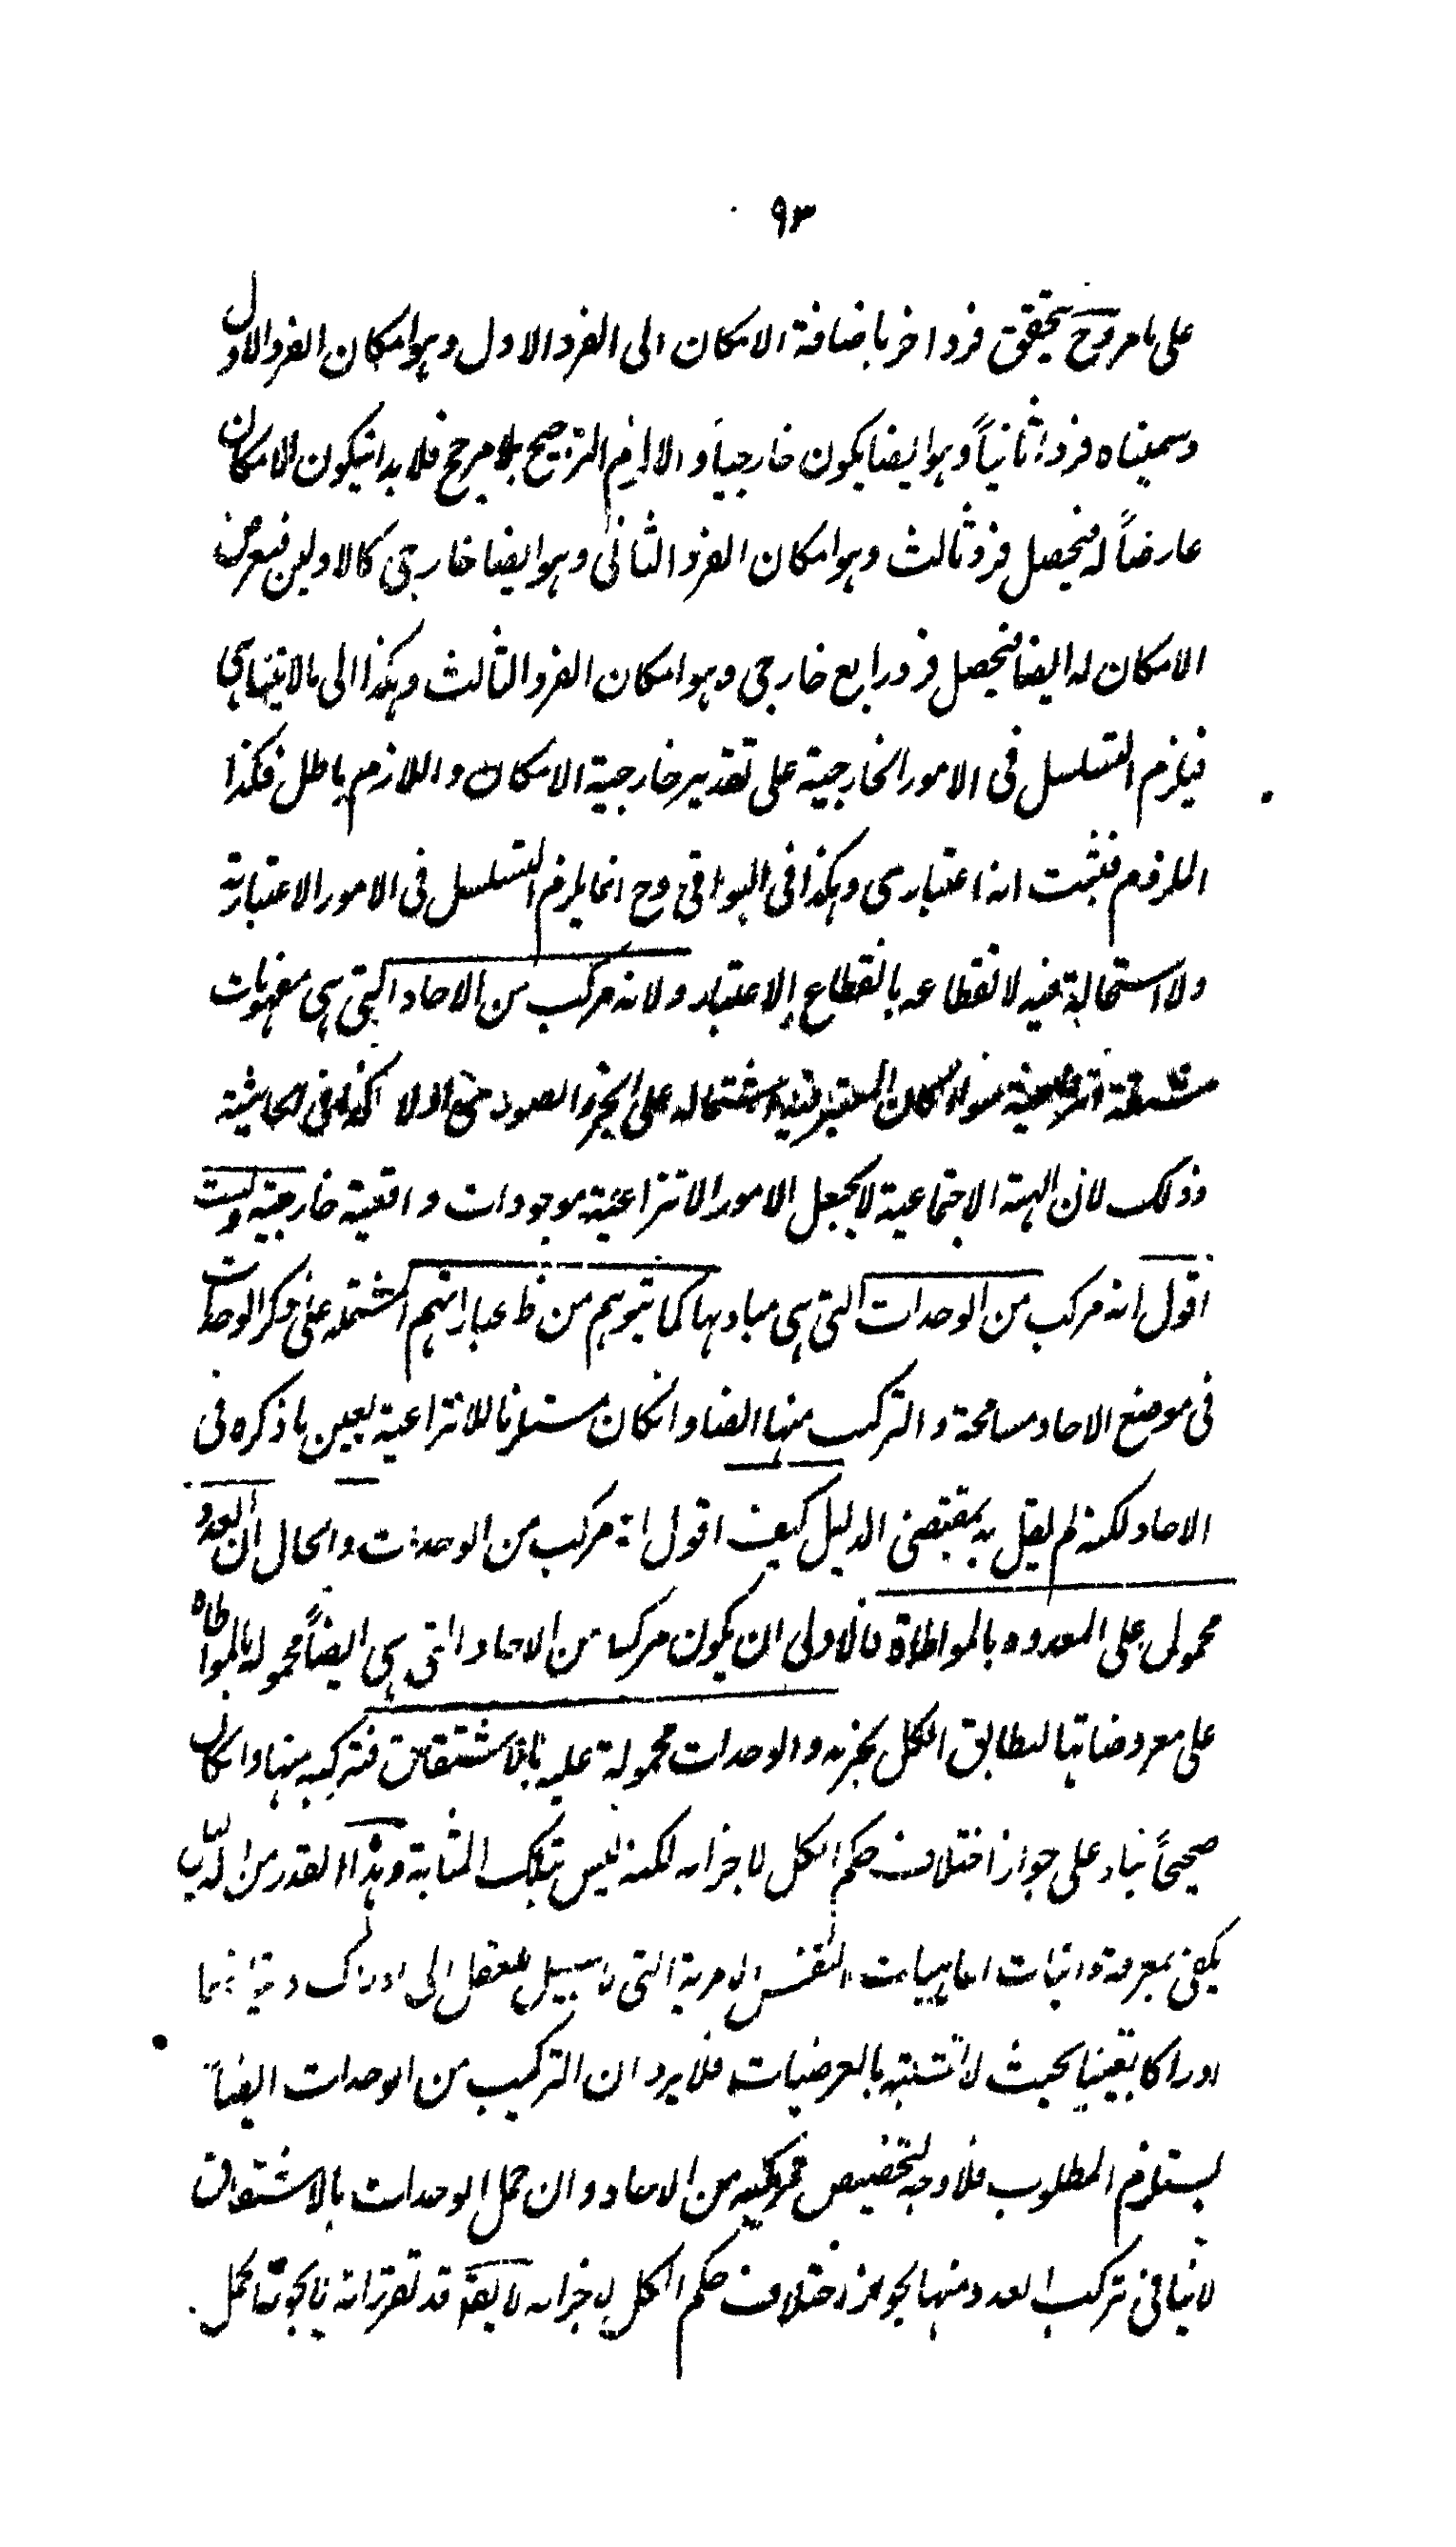 ٩٣
على ما مر وح يتحقق فرد اخر باضافة الامكان الى الفرد الاول وهو امكان الفرد الاول
وسميناه فردا ثانياً وهو ايضا يكون خارجياً و الا لزم الترجيح بلا مرجح فلا بد انيكون الامكان
عارضاً له فيحصل فرد ثالث وهو امكان الفرد الثانى وهو ايضا خارجى كالاولين فيعرض
الامكان له ايضا فيحصل فرد رابع خارجى وهو امكان الفرد الثالث وهكذا الى ما لا يتناهى
فيلزم التسلسل فى الامور الخارجية على تقدير خارجية الامكان و اللازم باطل فكذا
الملزوم فثبت انه اعتبارى وهكذا فى البواقى وح انما يلزم التسلسل فى الامور الاعتبارية
ولا استحالة فيه لانقطاعه بانقطاع الاعتبار ولانه مركب من الاحاد التى هى مفهومات
مشتقة انتزاعية سواء كان المعتبر فيه اشتماله على الجزء الصورى اولا كذا فى الحاشية
وذلك لان الهيئة الاجتماعية لا يجعل الامور الانتزاعية موجودات واقعية خارجية ولست
اقول انه مركب من الوحدات التى هى مباديها كما يتوهم من ظ عباراتهم المشتملة على ذكر الوحدات
فى موضع الاحاد مسامحة و التركيب منها ايضا وانكان مستلزما للانتزاعية بعين ما ذكره فى
الاحاد لكنه لم يقل به بمقتضى الدليل كيف اقول انه مركب من الوحدات والحال ان العدد
محمول على المعدود بالمواطاة فالاولى ان يكون مركبا من الاحاد التى هى ايضاً محمولة بالمواطاة
على معروضاتها ليطابق الكل بجزئه والوحدات محمولة عليه بالاشتقاق فتركيبه منها وانكان
صحيحاً بناء على جواز اختلاف حكم الكل لاجزائه لكنه ليس بتلك المثابة وهذا القدر من الدليل
يكفى بمعرفة ذاتيات الماهيات النفس الامرية التى لا سبيل للعقل الى ادراك ذاتياتها
ادراكا يقينيا بحيث لا تشتبه بالعرضيات فلا يرد ان التركيب من الوحدات ايضاً
يستلزم المطلوب فلا وجه لتخصيص تركيبه من الاحاد وان حمل الوحدات بالاشتقاق
لا ينافى تركيب العدد منها لجواز اختلاف حكم الكل لاجزائه لا يقال قد تقرر انه لا يجوز حمل